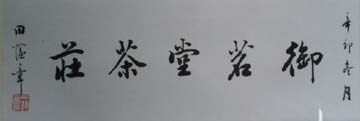 辛卯冬月
御茗堂茶莊
田蕴章